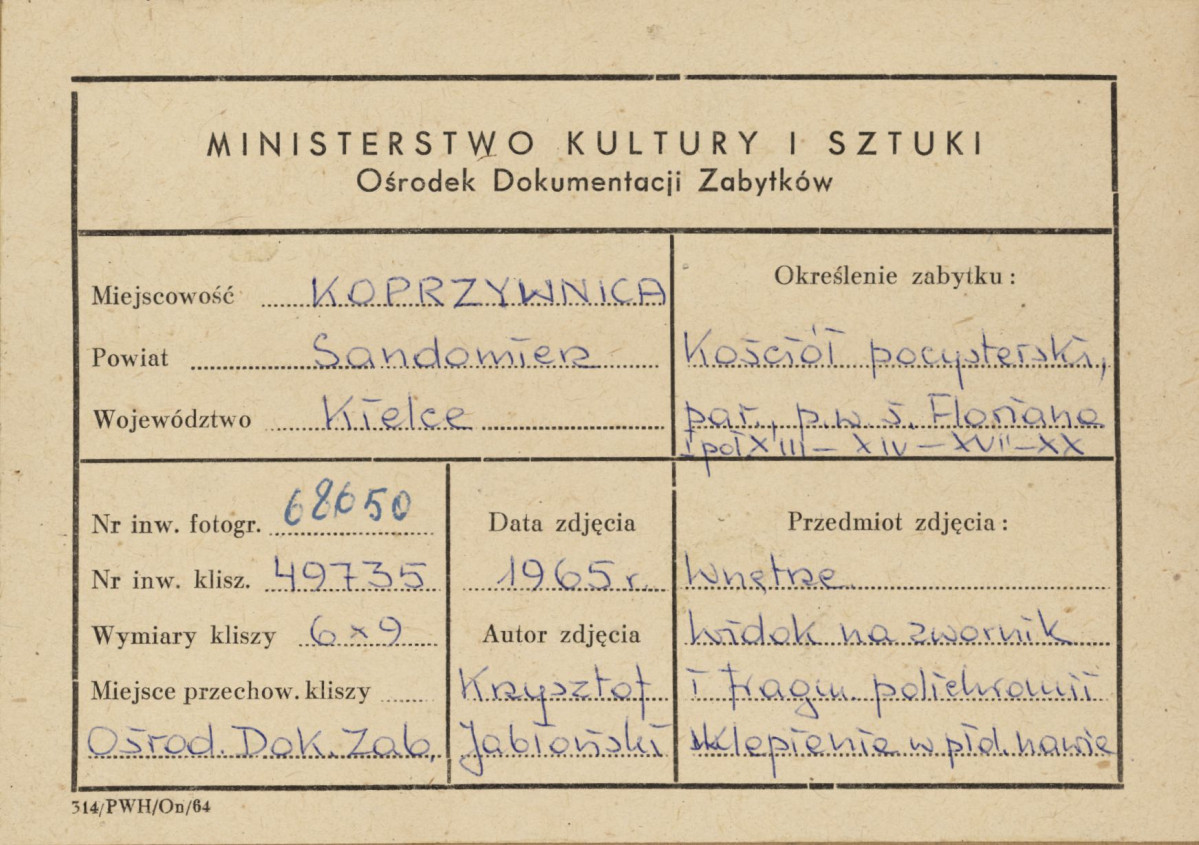 MINISTERSTWO KULTURY I SZTUKI
Ośrodek Dokumentacji Zabytków
Miejscowość KOPRZYWNICA
Powiat Sandomierz
Województwo Kielce
Określenie zabytku:
Kościół pocysterski,
par., p.w. ś. Floriana
I poł XIII – XIV – XVII – XX
Nr inw. fotogr. 68650
Nr inw. klisz. 49735
Wymiary kliszy 6×9
Miejsce przechow. kliszy
Ośrod. Dok. Zab.
Data zdjęcia
1965 r.
Autor zdjęcia
Krzysztof
Jabłoński
Przedmiot zdjęcia:
Wnętrze
Widok na zwornik
i fragm. polichromii
sklepienie w płd. nawie
314/PWH/On/64